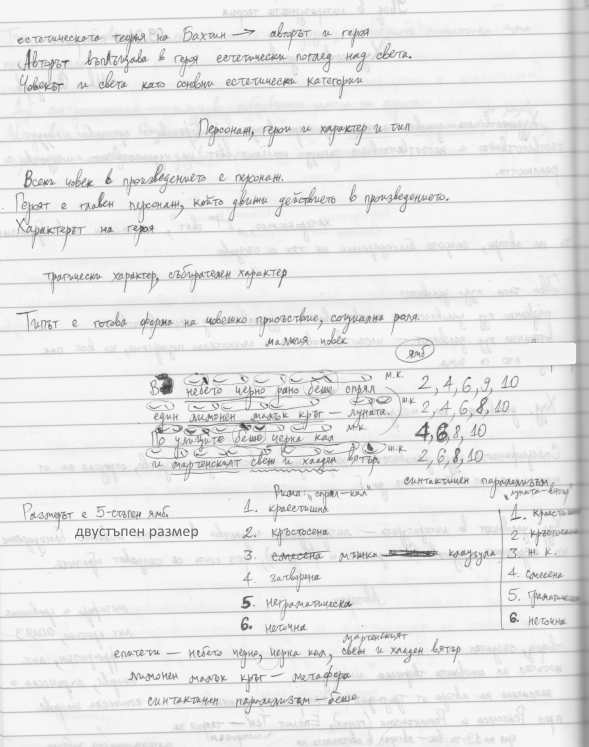 естетическата теория на Бахтин → авторът и героя
Авторът въплъщава в героя естетически поглед над света.
Човекът и света като основни естетически категории
Персонаж, герои и характер и тип
Всеки човек в произведението е персонаж.
Героят е главен персонаж, който движи действието в произведението.
Характерът на героя
трагически характер, събирателен характер
Типът е готова форма на човешко присъствие, социална роля.
малкия човек
ямб
В небето черно рано беше спрял м.к. 2, 4, 6, 9, 10
един лимонен малък кръг – луната. ж.к. 2, 4, 6, 8, 10
По улиците беше черна кал м.к. 4, 6, 8, 10
и мартенският свеж и хладен вятър ж.к. 2, 6, 8, 10
синтактичен паралелизъм
Рима: „спрял – кал“
„луната – вятър“
Размерът е 5-стъпен ямб.
двустъпен размер
1. краестишна
2. кръстосена
3. мъжка клаузула
4. затворена
5. неграматическа
6. неточна
1.
2.
3. ж. к.
4. смесена
5.
6. неточна
мартенският
епитети – небето черно, черна кал, свеж и хладен вятър
лимонен малък кръг – метафора
синтактичен паралелизъм – беше